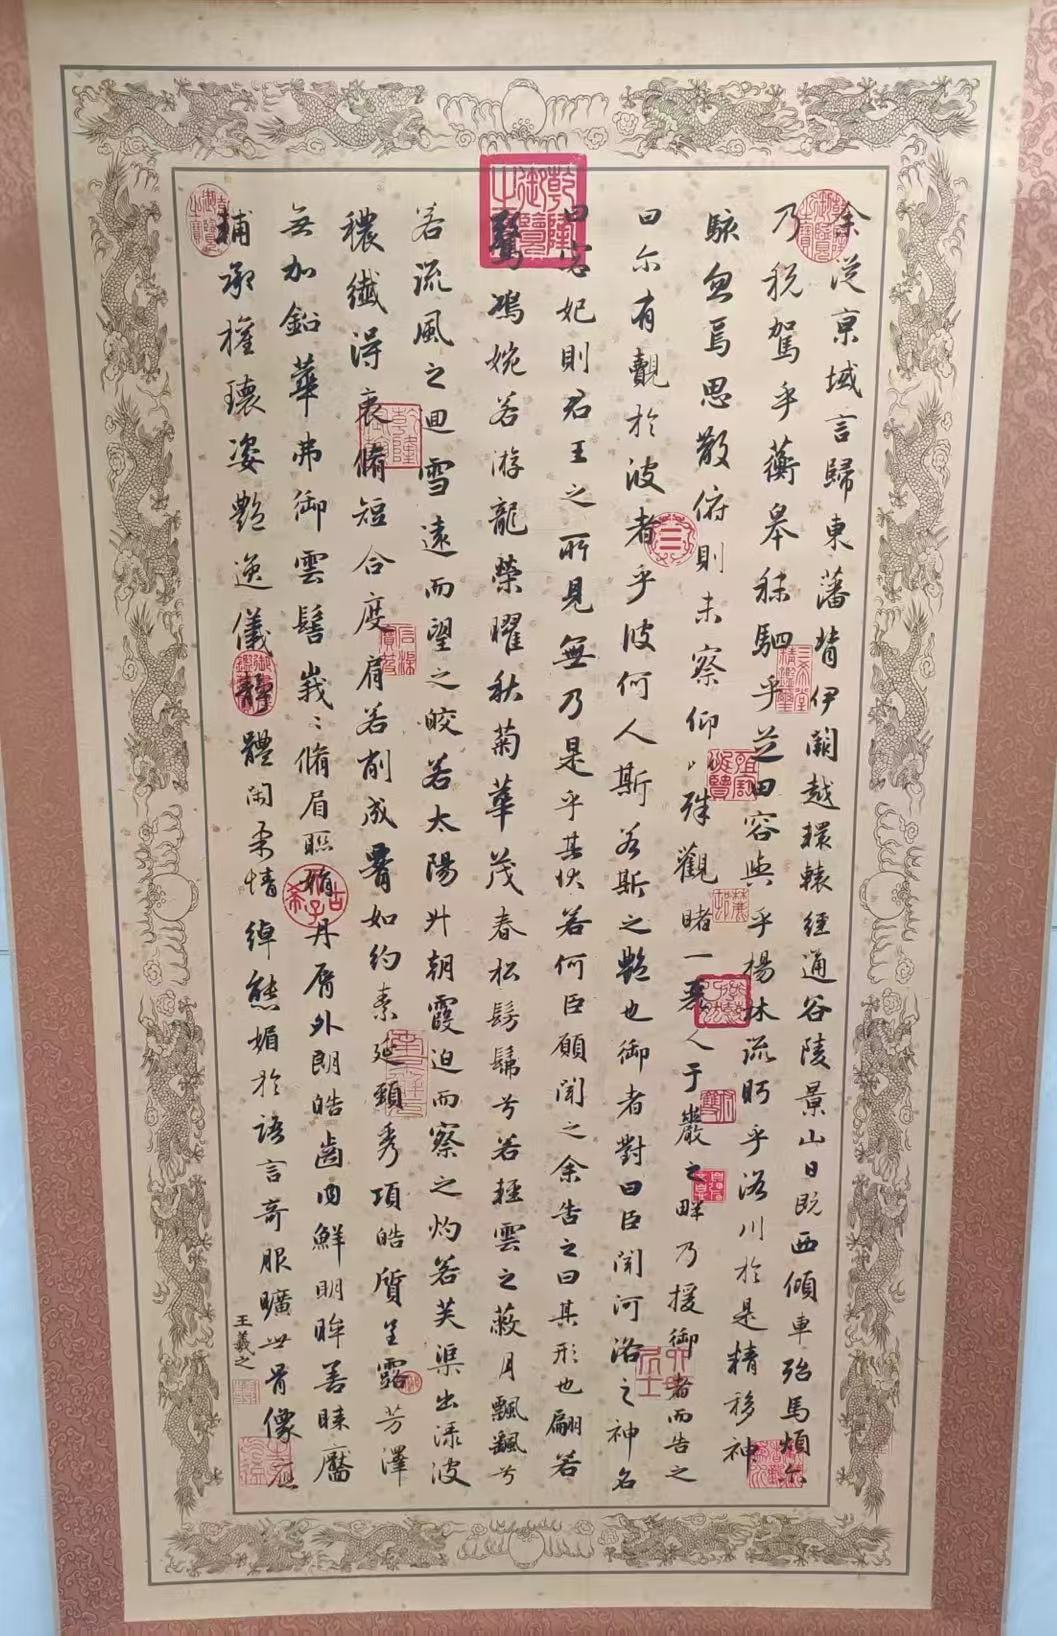 余從京域言歸東藩背伊闕越轘轅經通谷陵景山日既西傾車殆馬煩尒
乃税駕乎蘅皋秣駟乎芝田容與乎楊林流眄乎洛川於是精移神
駭忽焉思散俯則未察仰以殊觀睹一麗人于巖之畔乃援御者而告之
曰尒有覿於波者乎彼何人斯若斯之艷也御者對曰臣聞河洛之神名
曰宓妃則君王之所見無乃是乎其状若何臣願聞之余告之曰其形也翩若
驚鴻婉若游龍榮曜秋菊華茂春松髣髴兮若輕雲之蔽月飄飖兮
若流風之迴雪遠而望之皎若太陽升朝霞迫而察之灼若芙渠出渌波
穠纖得衷脩短合度肩若削成腰如約素延頸秀項皓質呈露芳澤
無加鉛華弗御雲髻峩〻脩眉聯娟丹脣外朗皓齒内鮮明眸善睞靨
輔承權瓌姿艷逸儀靜體閑柔情綽態媚於語言奇服曠世骨像應
王羲之
乾隆御覽之寶
古希天子